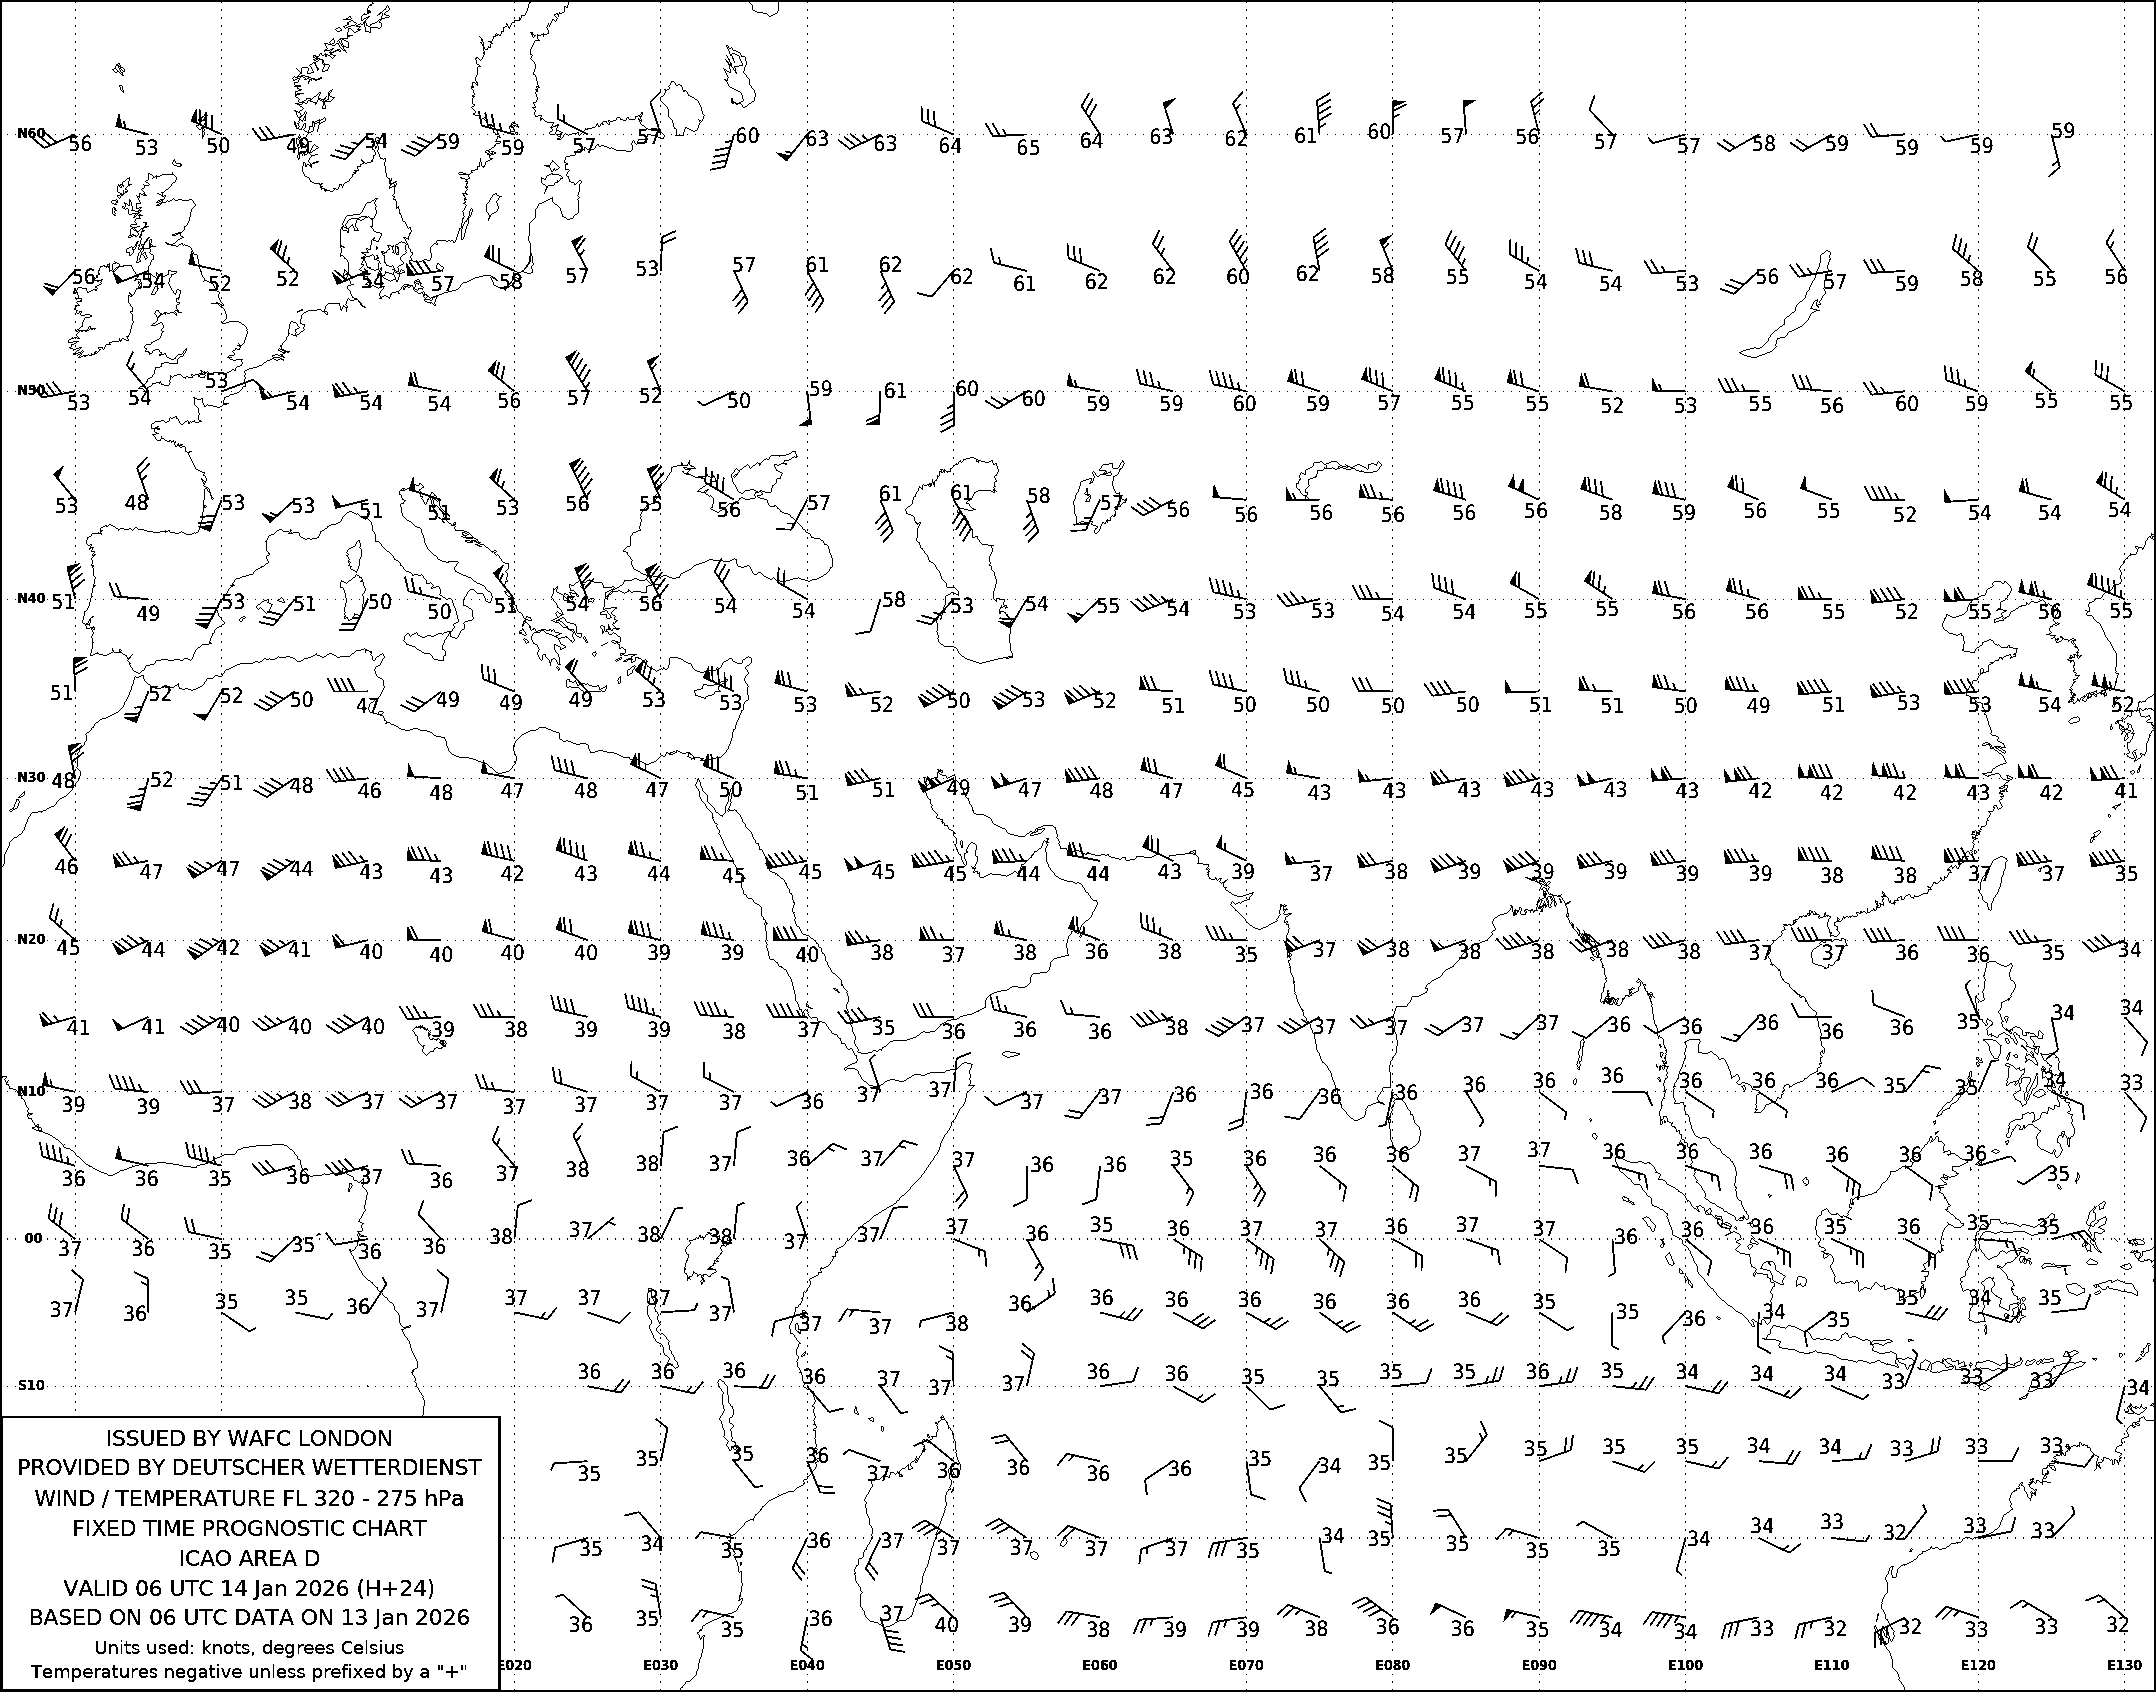 N60 56 53 50 49 54 59 59 57 57 60 63 63 64 65 64 63 62 61 60 57 56 57 57 58 59 59 59 59
56 54 52 52 54 57 58 57 53 57 61 62 62 61 62 62 60 62 58 55 54 54 53 56 57 59 58 55 56
N50 53 54 53 54 54 54 56 57 52 50 59 61 60 60 59 59 60 59 57 55 55 52 53 55 56 60 59 55 55
53 48 53 53 51 51 53 56 55 56 57 61 61 58 57 56 56 56 56 56 56 58 59 56 55 52 54 54 54
N40 51 49 53 51 50 50 51 54 56 54 54 58 53 54 55 54 53 53 54 54 55 55 56 56 55 52 55 56 55
51 52 52 50 47 49 49 49 53 53 53 52 50 53 52 51 50 50 50 50 51 51 50 49 51 53 53 54 52
N30 48 52 51 48 46 48 47 48 47 50 51 51 49 47 48 47 45 43 43 43 43 43 43 42 42 42 43 42 41
46 47 47 44 43 43 42 43 44 45 45 45 45 44 44 43 39 37 38 39 39 39 39 39 38 38 37 37 35
N20 45 44 42 41 40 40 40 40 39 39 40 38 37 38 36 38 35 37 38 38 38 38 38 37 37 36 36 35 34
41 41 40 40 40 39 38 39 39 38 37 35 36 36 36 38 37 37 37 37 37 36 36 36 36 36 35 34 34
N10 39 39 37 38 37 37 37 37 37 37 36 37 37 37 37 36 36 36 36 36 36 36 36 36 36 35 35 34 33
36 36 35 36 37 36 37 38 38 37 36 37 37 36 36 35 36 36 36 37 37 36 36 36 36 36 36 35
00 37 36 35 35 36 36 38 37 38 38 37 37 37 36 35 36 37 37 36 37 37 36 36 36 35 36 35 35
37 36 35 35 36 37 37 37 37 37 37 37 38 36 36 36 36 36 36 36 35 35 36 34 35 35 34 35
S10 36 36 36 36 37 37 37 36 36 35 35 35 35 36 35 34 34 34 33 33 33 34
35 35 35 36 37 36 36 36 36 35 34 35 35 35 35 35 34 34 33 33 33
35 34 35 36 37 37 37 37 37 35 34 35 35 35 35 34 34 33 32 33 33
36 35 35 36 37 40 39 38 39 39 38 36 36 35 34 34 33 32 32 33 33 32
ISSUED BY WAFC LONDON
PROVIDED BY DEUTSCHER WETTERDIENST
WIND / TEMPERATURE FL 320 - 275 hPa
FIXED TIME PROGNOSTIC CHART
ICAO AREA D
VALID 06 UTC 14 Jan 2026 (H+24)
BASED ON 06 UTC DATA ON 13 Jan 2026
Units used: knots, degrees Celsius
Temperatures negative unless prefixed by a "+"
E020 E030 E040 E050 E060 E070 E080 E090 E100 E110 E120 E130